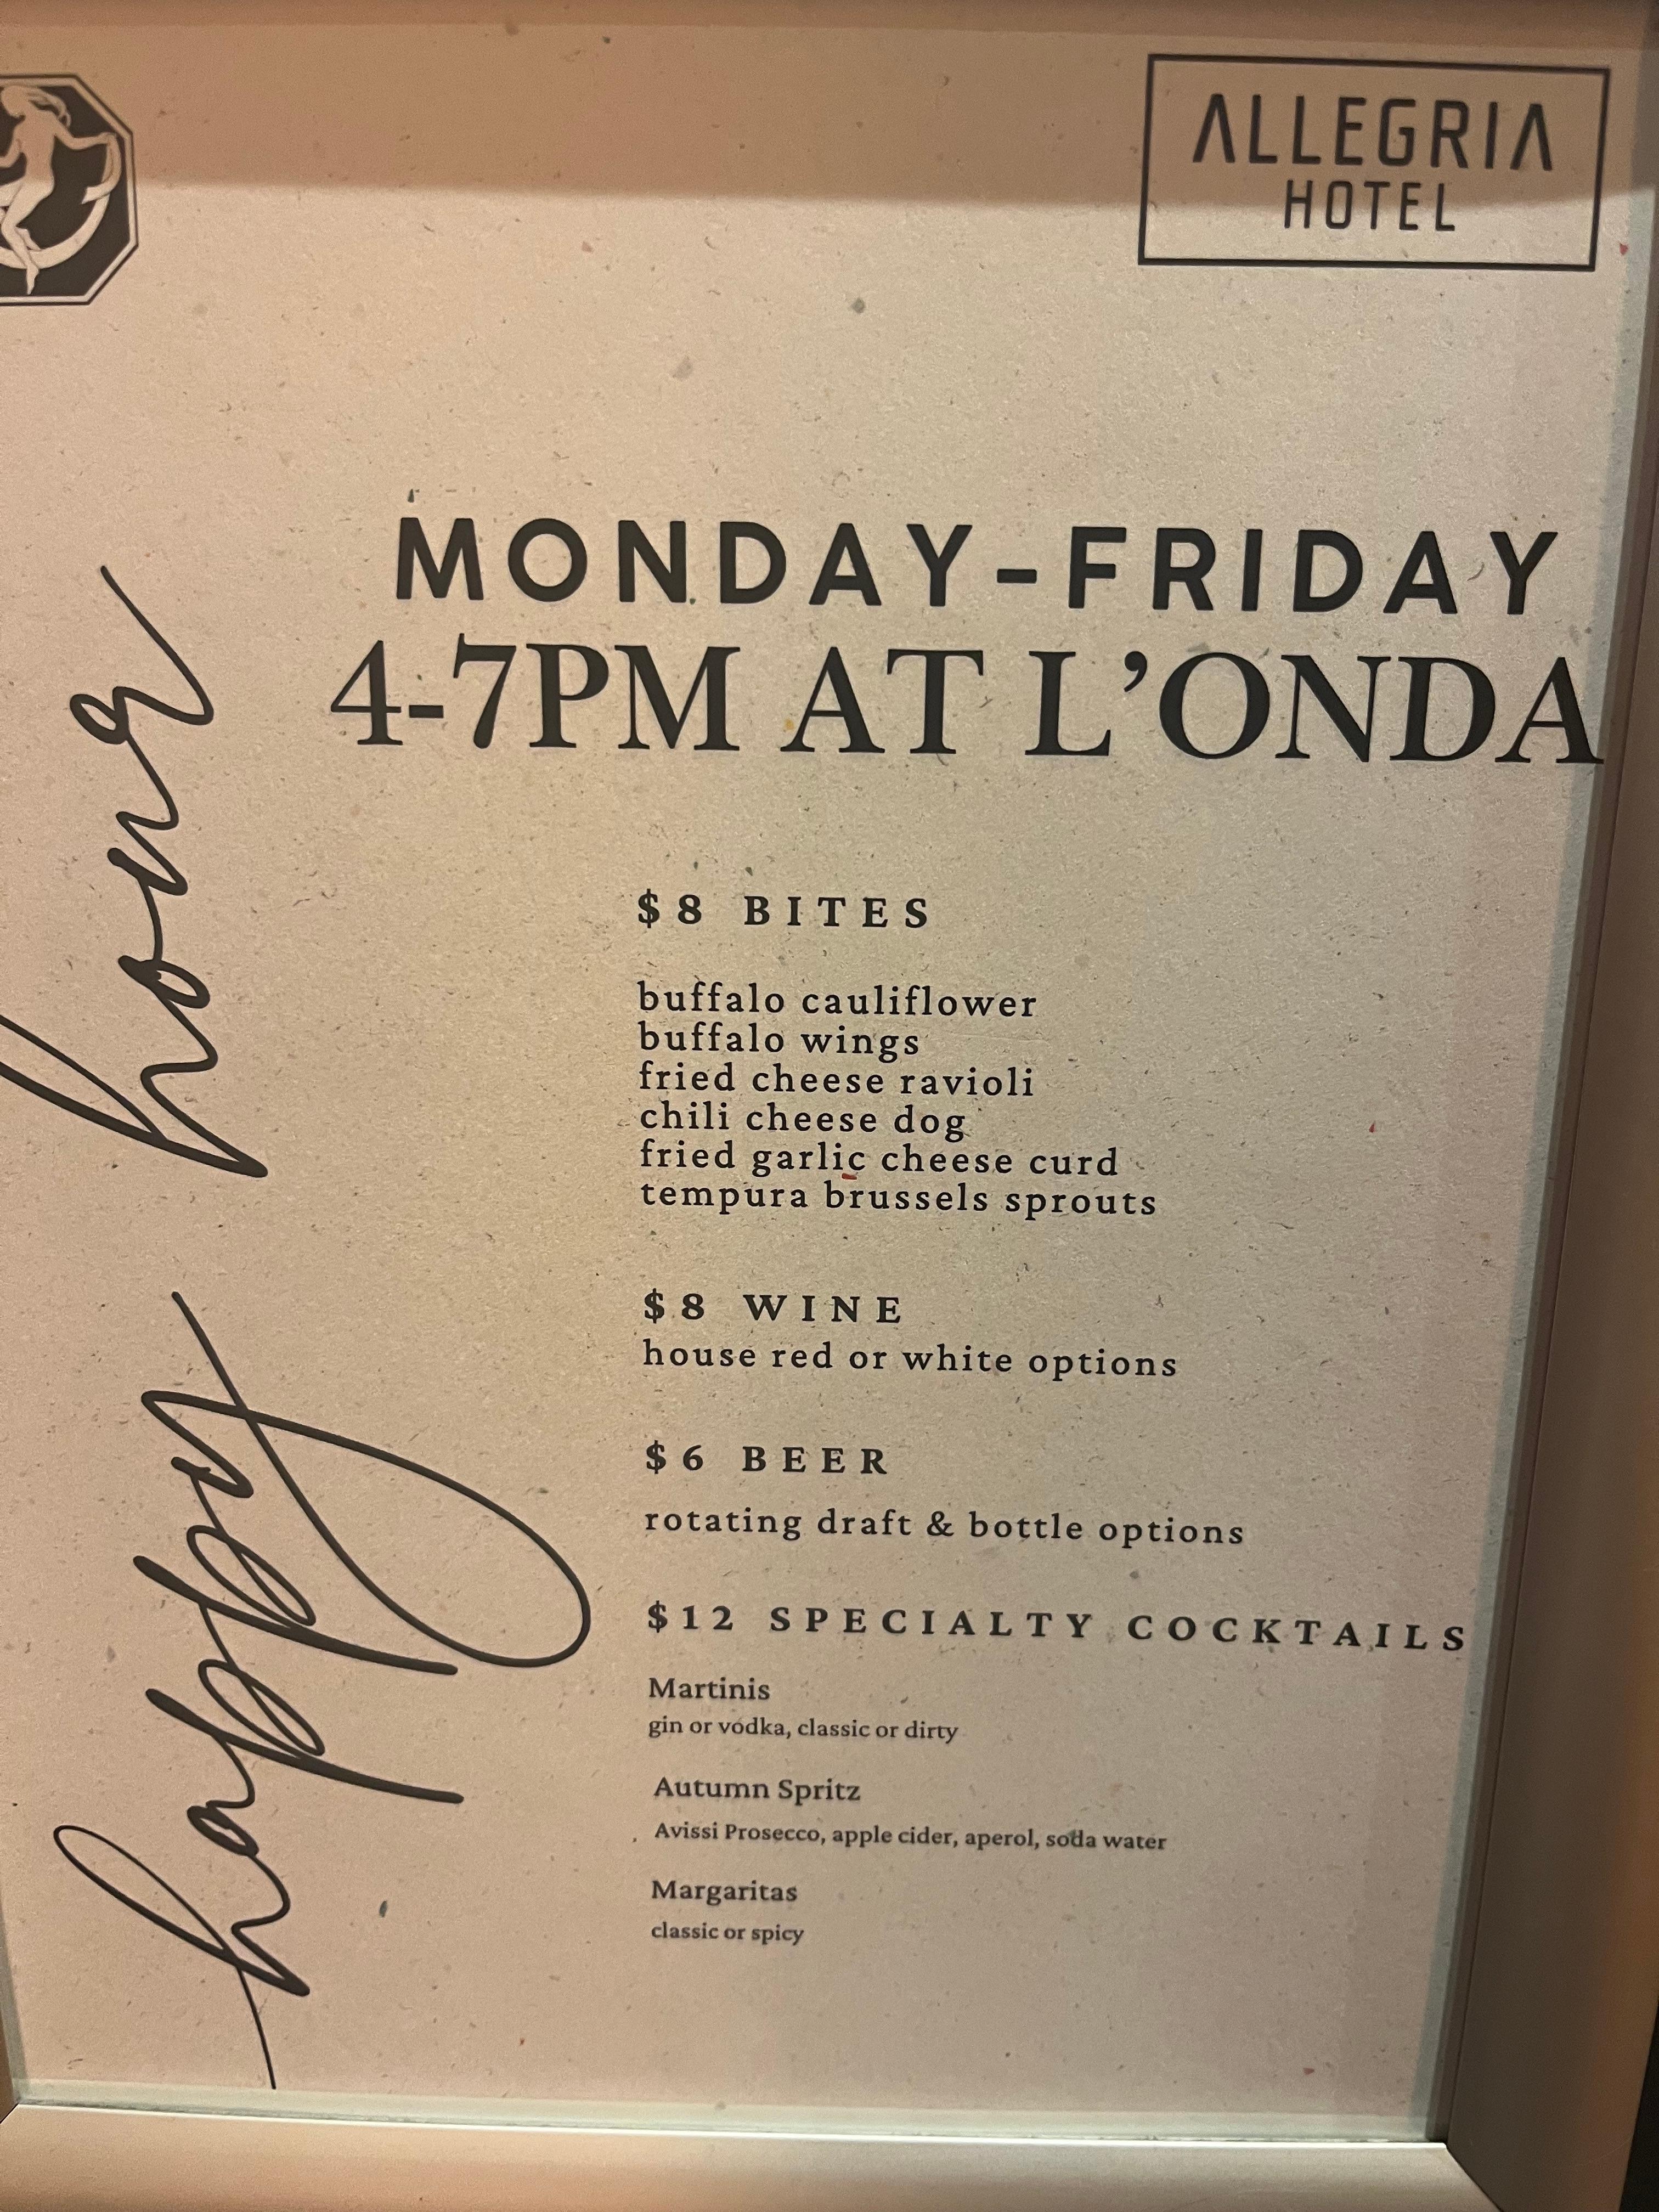 ALLEGRIA
HOTEL
happy hour
MONDAY-FRIDAY
4-7PM AT L'ONDA
$8 BITES
buffalo cauliflower
buffalo wings
fried cheese ravioli
chili cheese dog
fried garlic cheese curd
tempura brussels sprouts
$8 WINE
house red or white options
$6 BEER
rotating draft & bottle options
$12 SPECIALTY COCKTAILS
Martinis
gin or vodka, classic or dirty
Autumn Spritz
Avissi Prosecco, apple cider, aperol, soda water
Margaritas
classic or spicy